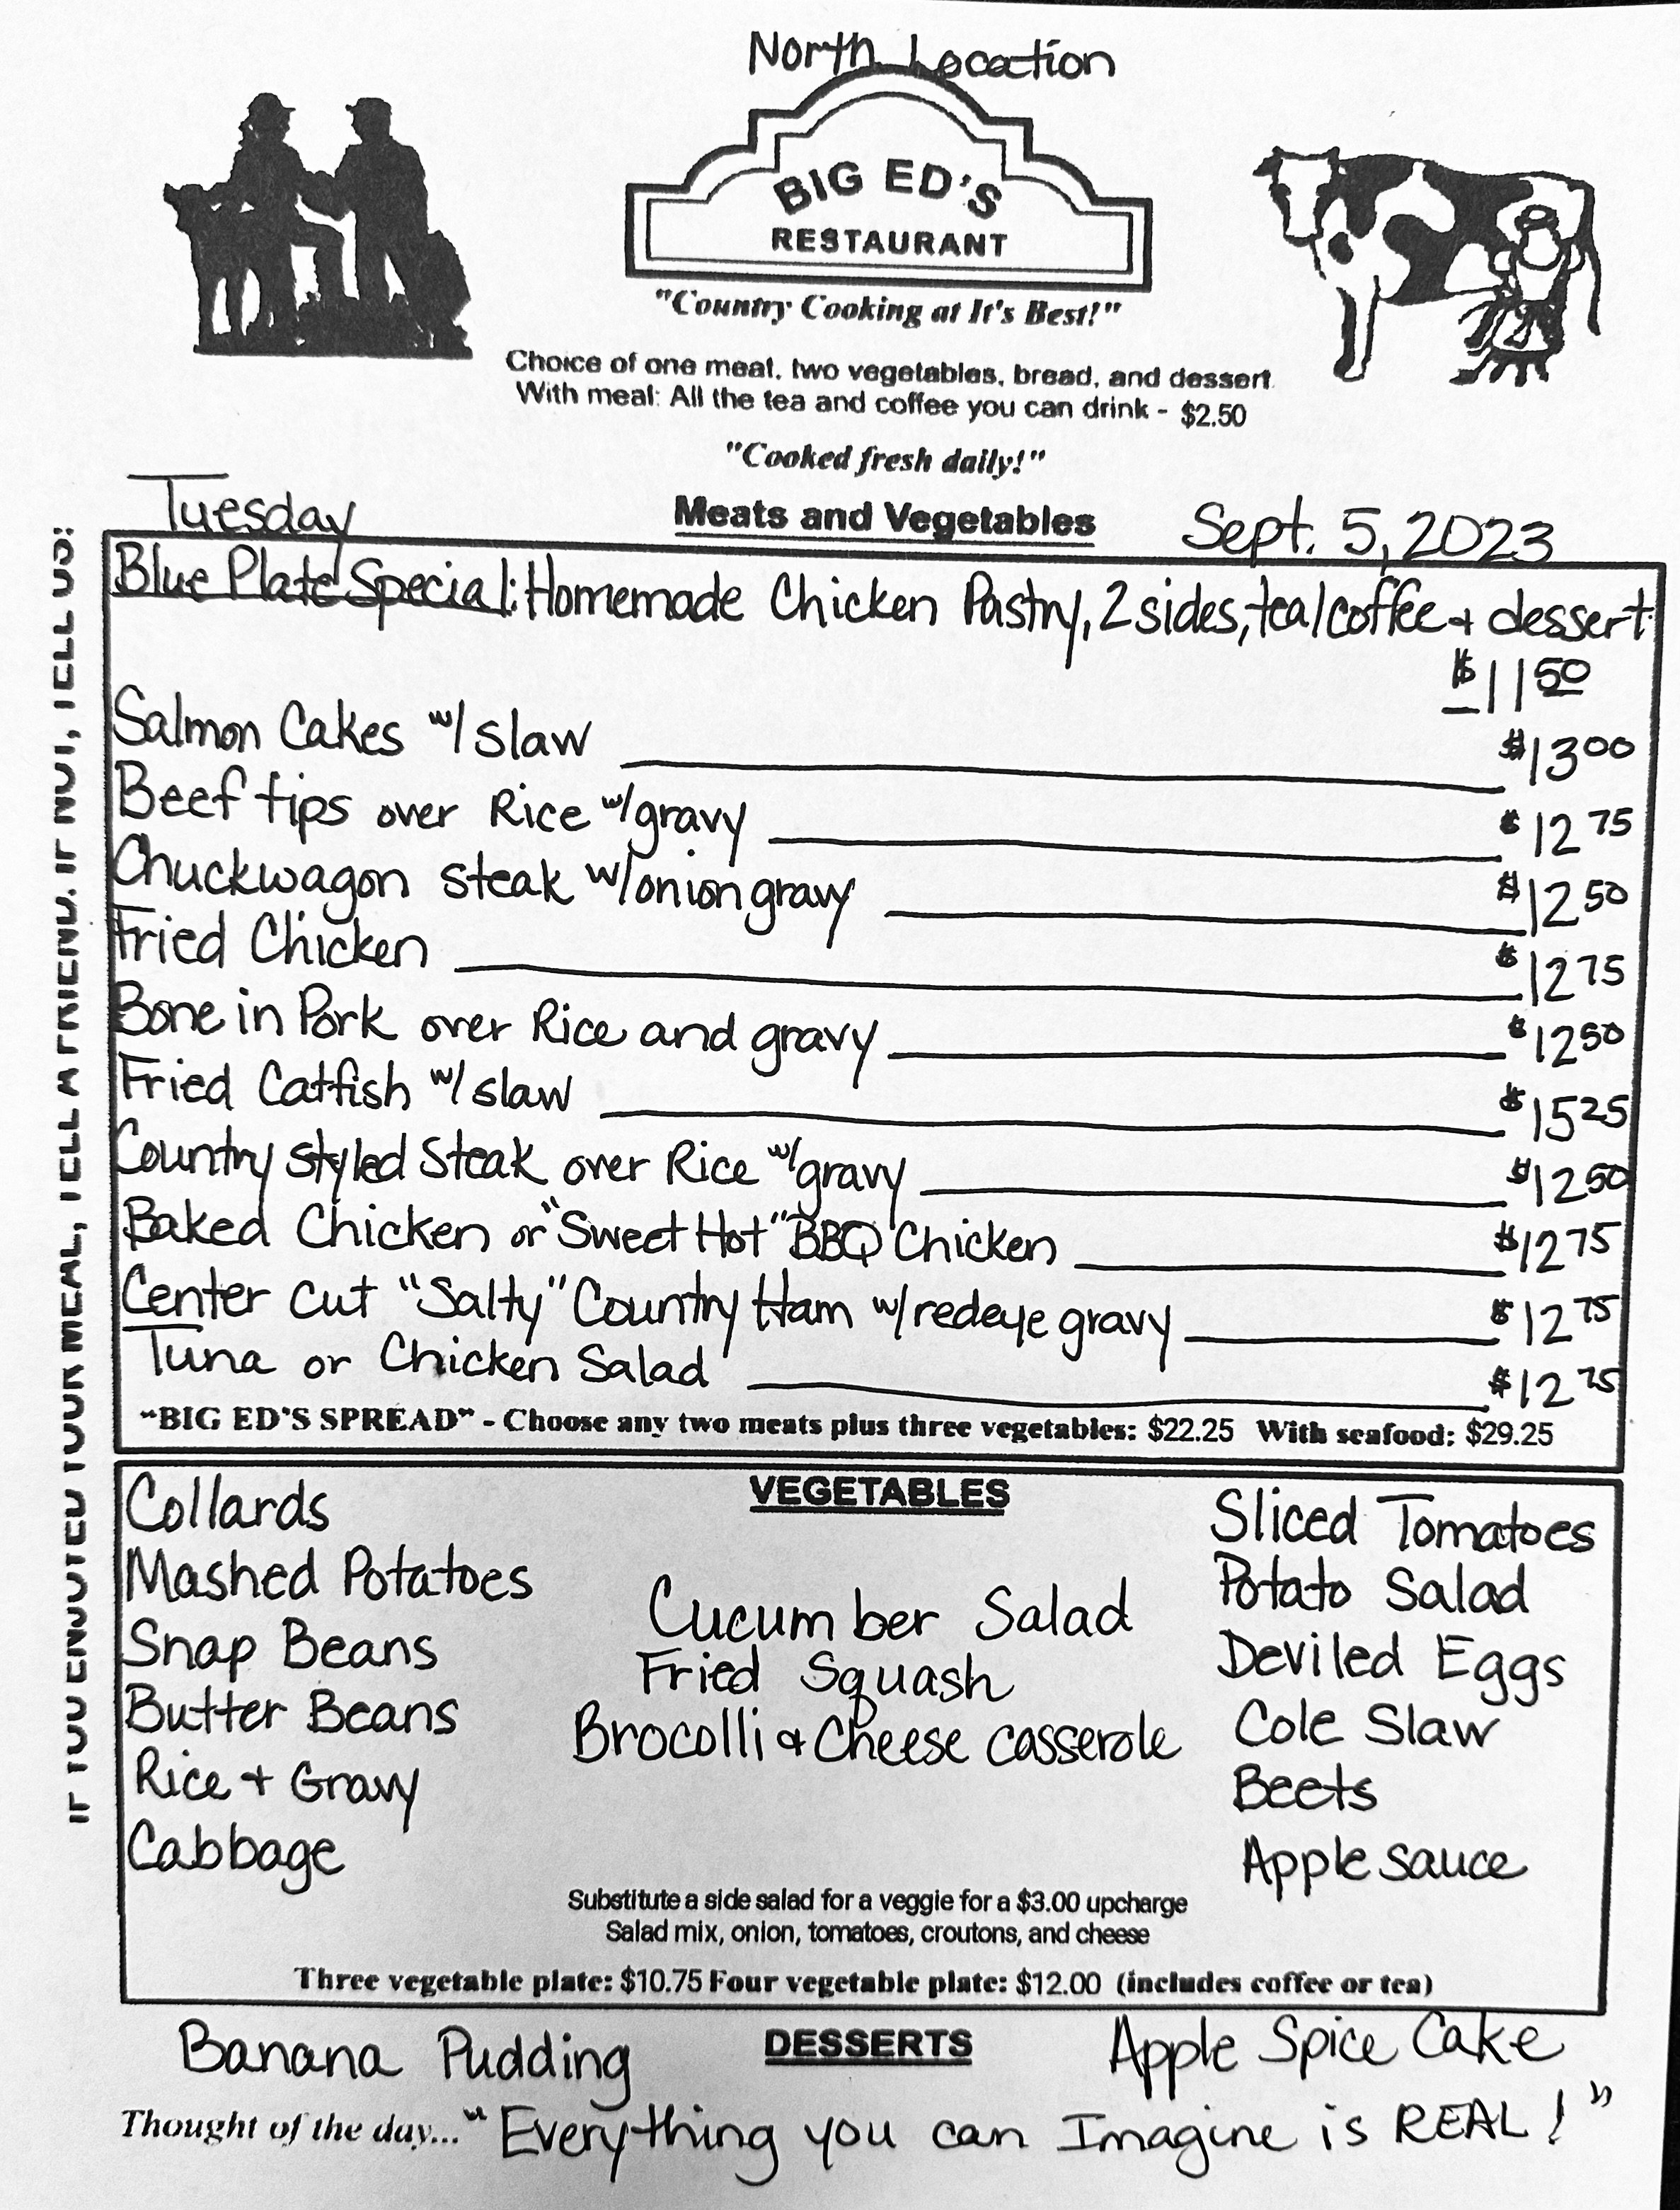 North Location
BIG ED'S
RESTAURANT
"Country Cooking at It's Best!"
Choice of one meat, two vegetables, bread, and dessert.
With meal: All the tea and coffee you can drink - $2.50
"Cooked fresh daily!"
Tuesday Meats and Vegetables Sept. 5, 2023
Blue Plate Special: Homemade Chicken Pastry, 2 sides, tea/coffee + dessert
$11 50
Salmon Cakes w/ slaw $13 00
Beef tips over Rice w/ gravy $12 75
Chuckwagon steak w/ onion gravy $12 50
Fried Chicken $12 75
Bone in Pork over Rice and gravy $12 50
Fried Catfish w/ slaw $15 25
Country styled Steak over Rice w/ gravy $12 50
Baked Chicken or "Sweet Hot" BBQ Chicken $12 75
Center cut "Salty" Country Ham w/ redeye gravy $12 75
Tuna or Chicken Salad $12 75
"BIG ED'S SPREAD" - Choose any two meats plus three vegetables: $22.25 With seafood: $29.25
VEGETABLES
Collards
Mashed Potatoes
Snap Beans
Butter Beans
Rice + Gravy
Cabbage
Cucumber Salad
Fried Squash
Brocolli & Cheese casserole
Sliced Tomatoes
Potato Salad
Deviled Eggs
Cole Slaw
Beets
Apple sauce
Substitute a side salad for a veggie for a $3.00 upcharge
Salad mix, onion, tomatoes, croutons, and cheese
Three vegetable plate: $10.75 Four vegetable plate: $12.00 (includes coffee or tea)
Banana Pudding DESSERTS Apple Spice Cake
Thought of the day... "Everything you can Imagine is REAL!"
IF YOU ENJOYED YOUR MEAL, TELL A FRIEND. IF NOT, TELL US!